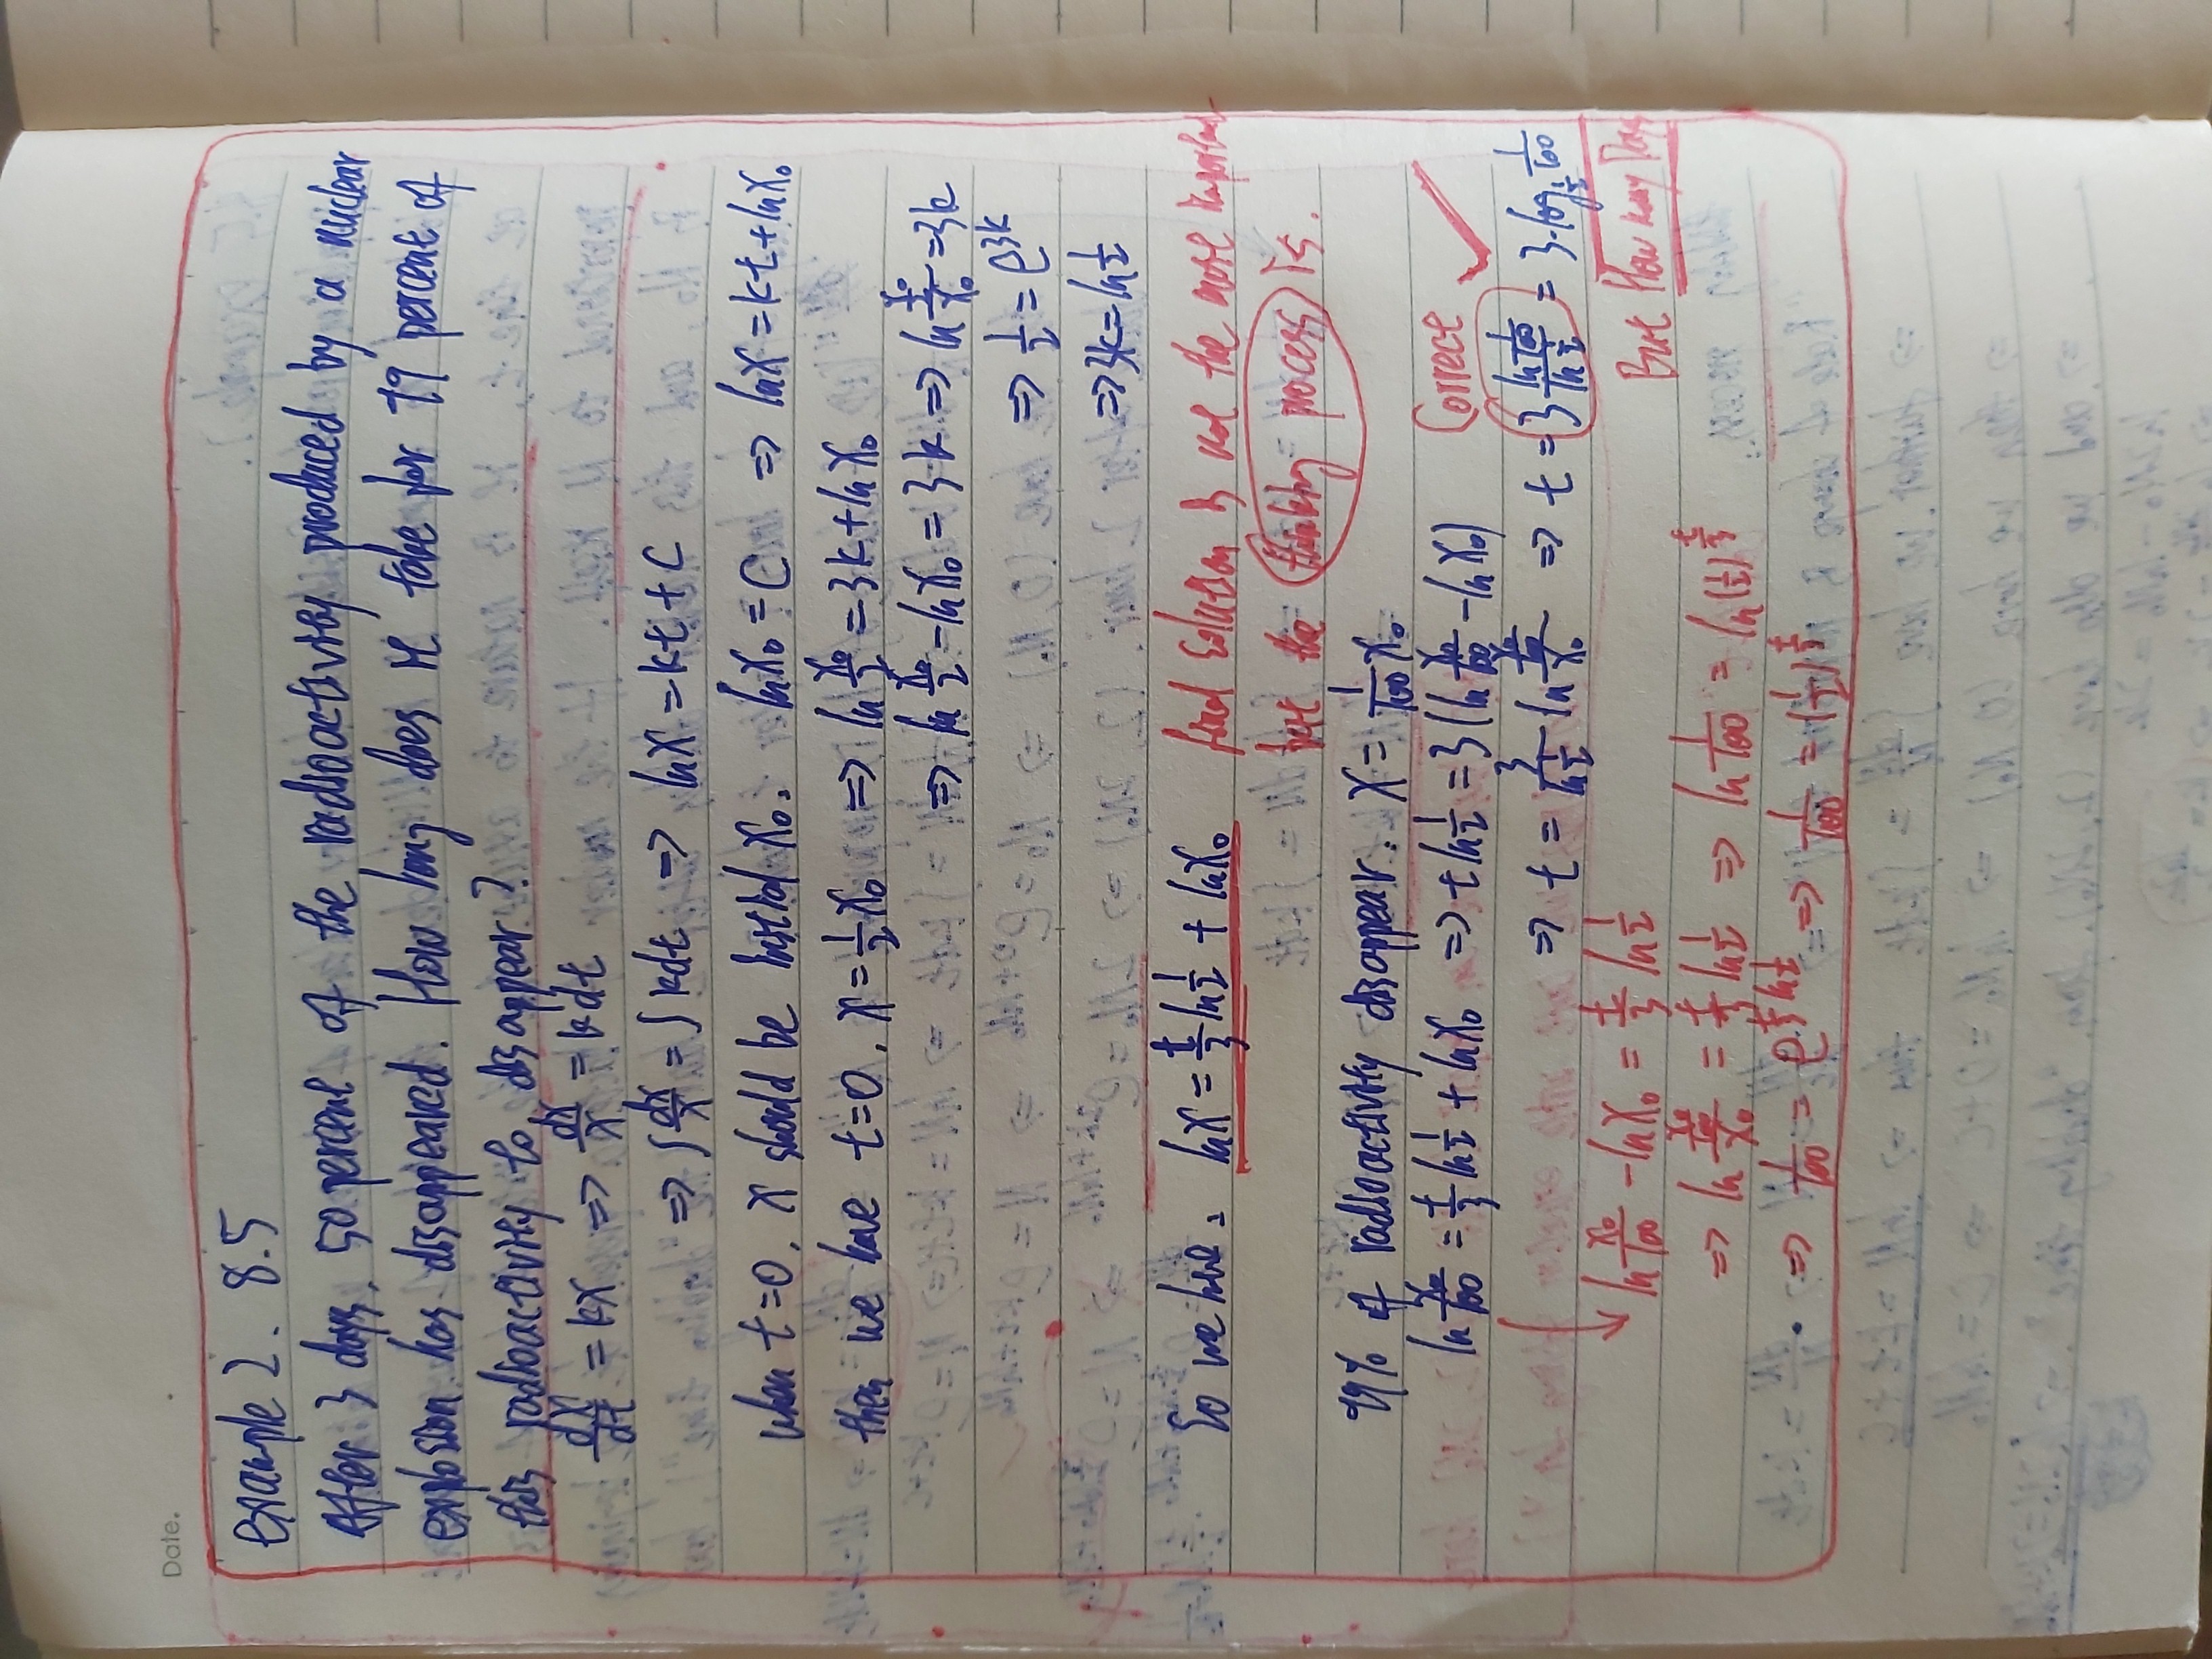 Date.
Example 2. 8.5
After 3 days, 50 percent of the radioactivity produced by a nuclear
explosion has disappeared. How long does it take for 99 percent of
this radioactivity to disappear?
dx/dt = kx => dx/x = kdt
=> ∫ dx/x = ∫ kdt => lnx = kt + C
when t=0, x should be initial x₀, lnx₀ = C => lnx = kt + lnx₀
then we have t=0, x = 1/2 x₀ => ln x₀/2 = 3k + lnx₀
=> ln x₀/2 - lnx₀ = 3k => ln (x₀/2)/x₀ = 3k
=> 1/2 = e^(3k)
=> 3k = ln 1/2
So we have: lnx = t/3 ln 1/2 + lnx₀ final solution is not the most important
but the thinking process is.
99% of radioactivity disappear. x = 1/100 x₀
ln x₀/100 = t/3 ln 1/2 + lnx₀ => t ln 1/2 = 3(ln x₀/100 - lnx₀) Correct ✓
=> t = 3/(ln 1/2) ln (x₀/100)/x₀ => t = 3 (ln 1/100)/(ln 1/2) = 3·log_(1/2) 1/100
ln x₀/100 - lnx₀ = t/3 ln 1/2 But How many Days
=> ln (x₀/100)/x₀ = t/3 ln 1/2 => ln 1/100 = ln(1/2)^(t/3)
=> 1/100 = e^(t/3 ln 1/2) => 1/100 = (1/2)^(t/3)